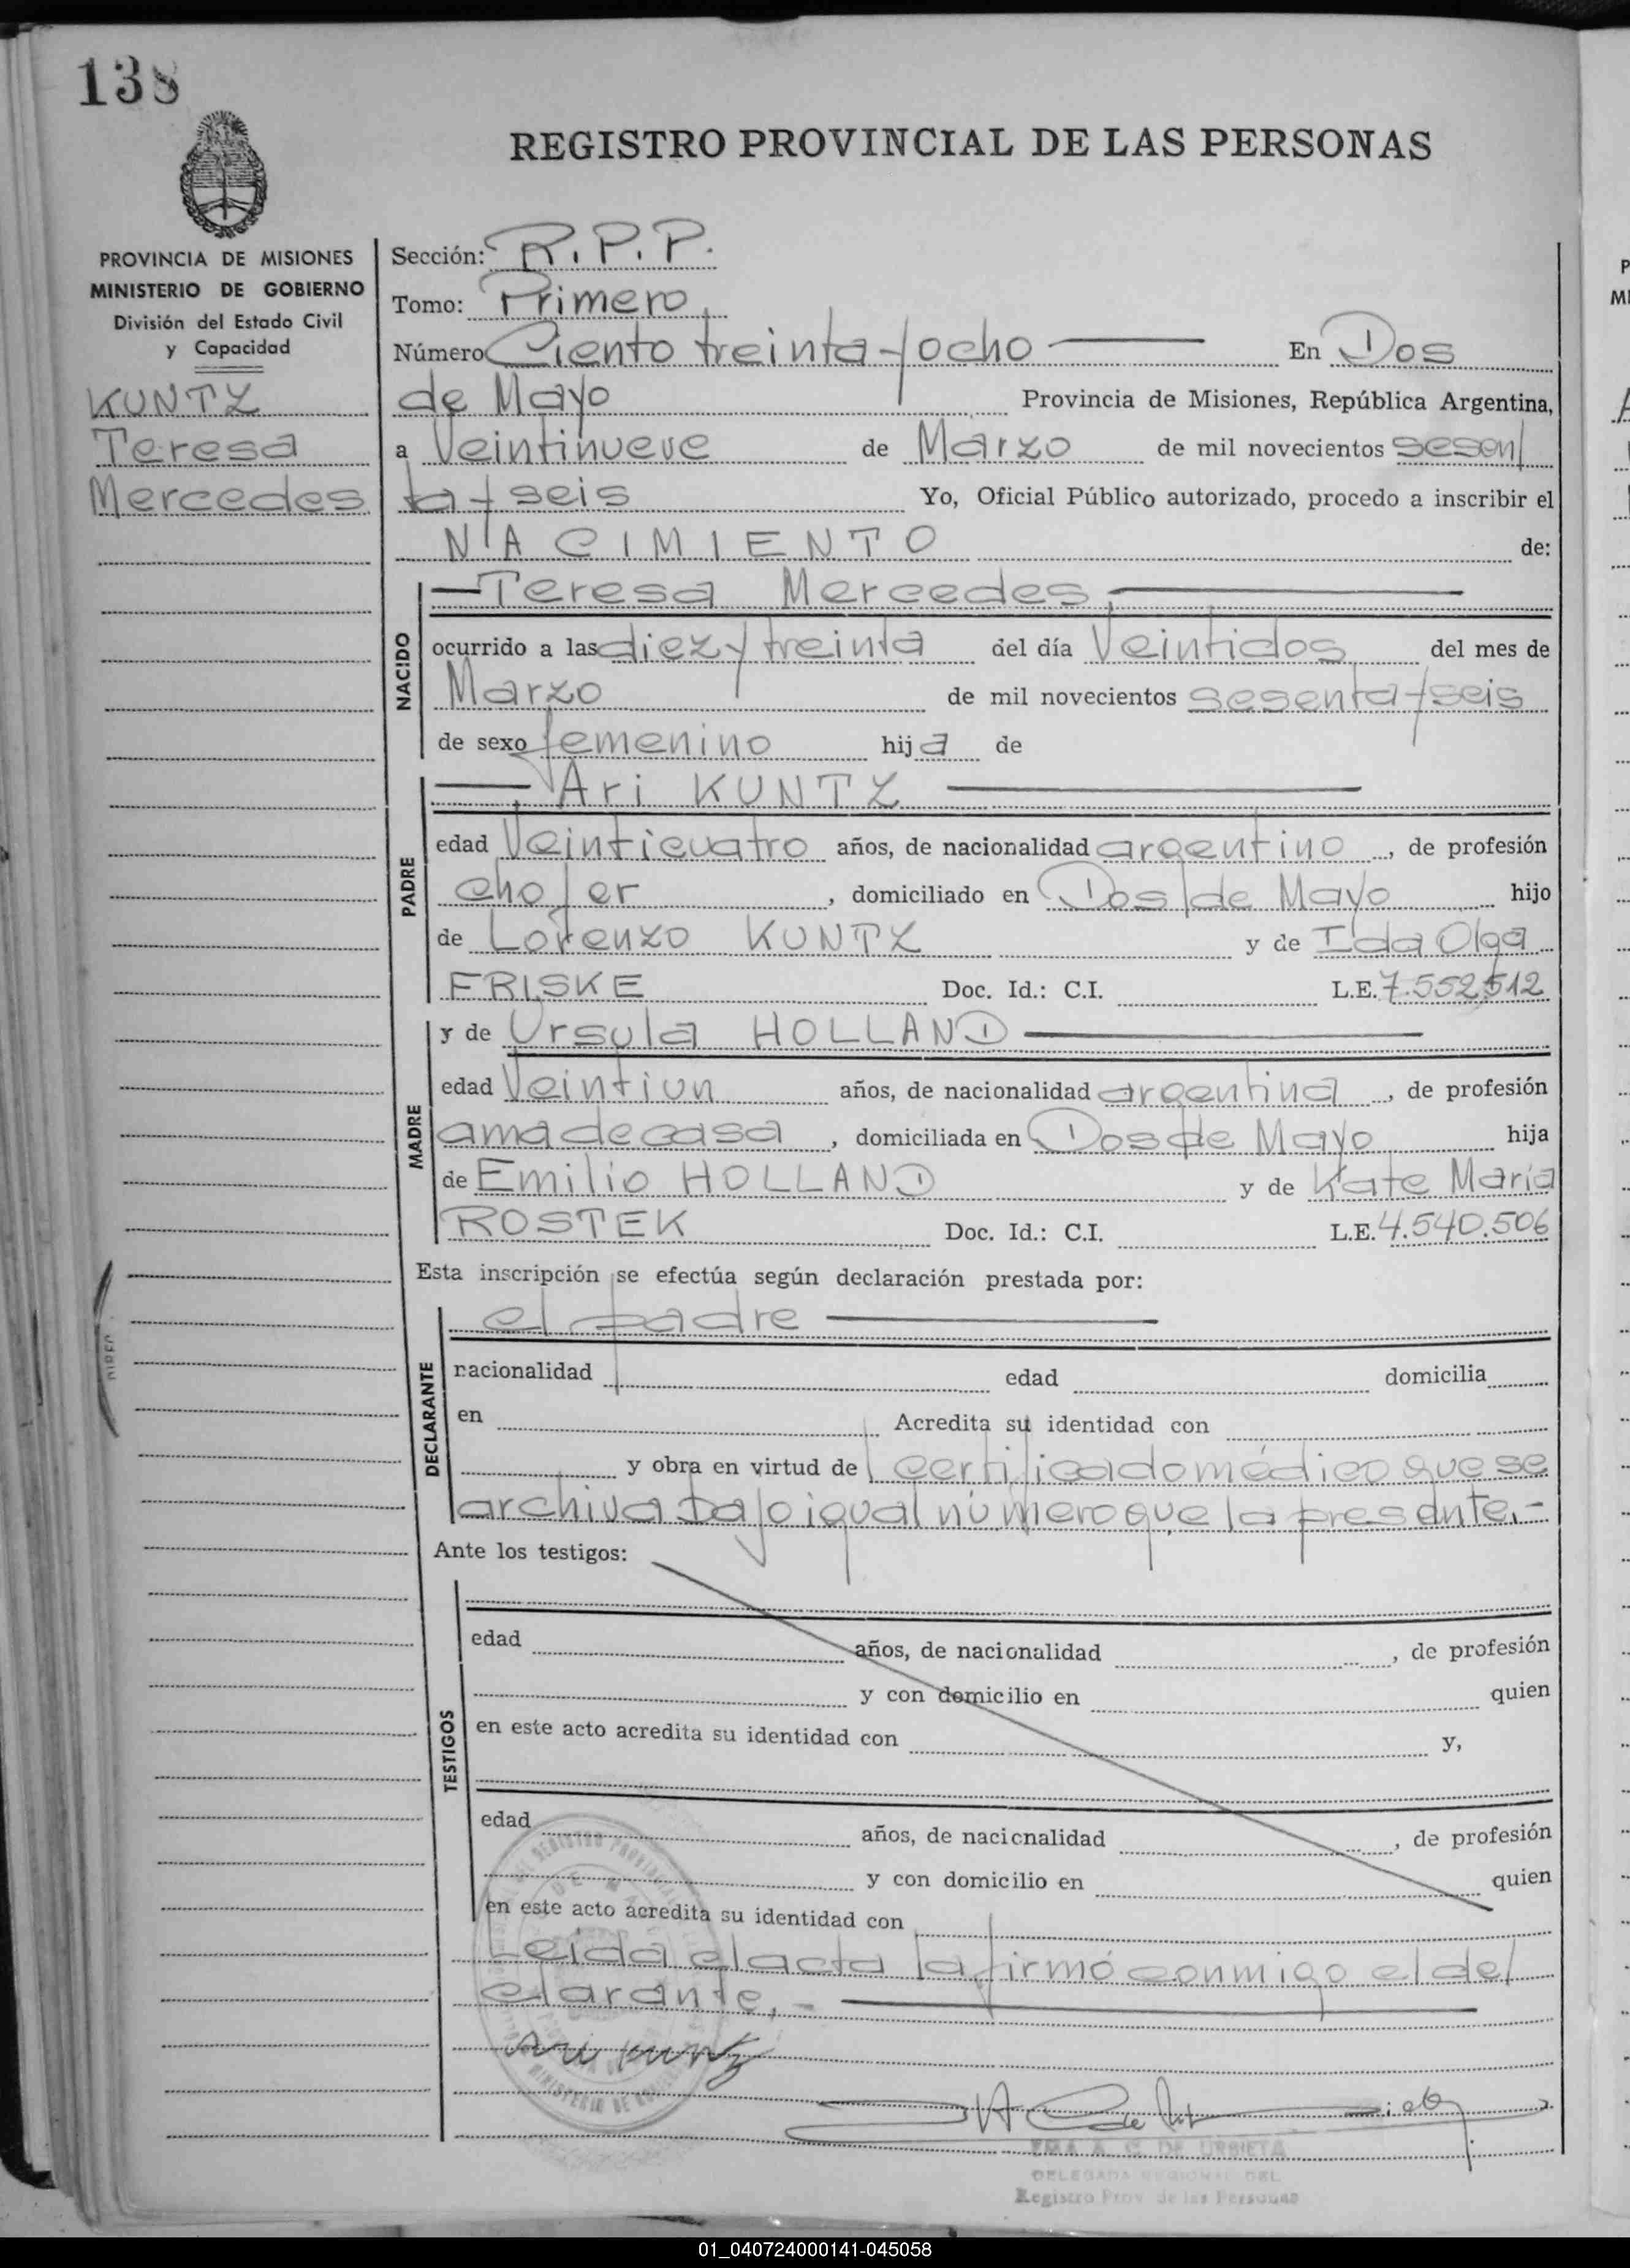 138
REGISTRO PROVINCIAL DE LAS PERSONAS
PROVINCIA DE MISIONES
MINISTERIO DE GOBIERNO
División del Estado Civil
y Capacidad
KUNTZ
Teresa
Mercedes
Sección: R.P.P.
Tomo: Primero
Número Ciento treinta y ocho En Dos
de Mayo Provincia de Misiones, República Argentina,
a Veintinueve de Marzo de mil novecientos sesen
ta y seis Yo, Oficial Público autorizado, procedo a inscribir el
NACIMIENTO de:
NACIDO
Teresa Mercedes
ocurrido a las diez y treinta del día Veintidos del mes de
Marzo de mil novecientos sesenta y seis
de sexo femenino hija de
PADRE
Ari KUNTZ
edad Veinticuatro años, de nacionalidad argentino, de profesión
chofer, domiciliado en Dos de Mayo hijo
de Lorenzo KUNTZ y de Ida Olga
FRISKE Doc. Id.: C.I. L.E. 7.552512
MADRE
y de Ursula HOLLAND
edad Veintiun años, de nacionalidad argentina, de profesión
ama de casa, domiciliada en Dos de Mayo hija
de Emilio HOLLAND y de Kate María
ROSTEK Doc. Id.: C.I. L.E. 4.540.506
Esta inscripción se efectúa según declaración prestada por:
DECLARANTE
el padre
nacionalidad edad domicilia
en Acredita su identidad con
y obra en virtud de certificado médico que se
archiva bajo igual número que la presente.-
Ante los testigos:
TESTIGOS
edad años, de nacionalidad , de profesión
y con domicilio en quien
en este acto acredita su identidad con y,
edad años, de nacicnalidad , de profesión
y con domicilio en quien
en este acto acredita su identidad con
Leida el acta la firmó conmigo el del
clarante.-
Ari Kuntz
A. C. DE URBIETA
DELEGADA REGIONAL DEL
Registro Prov. de las Personas
01_040724000141-045058